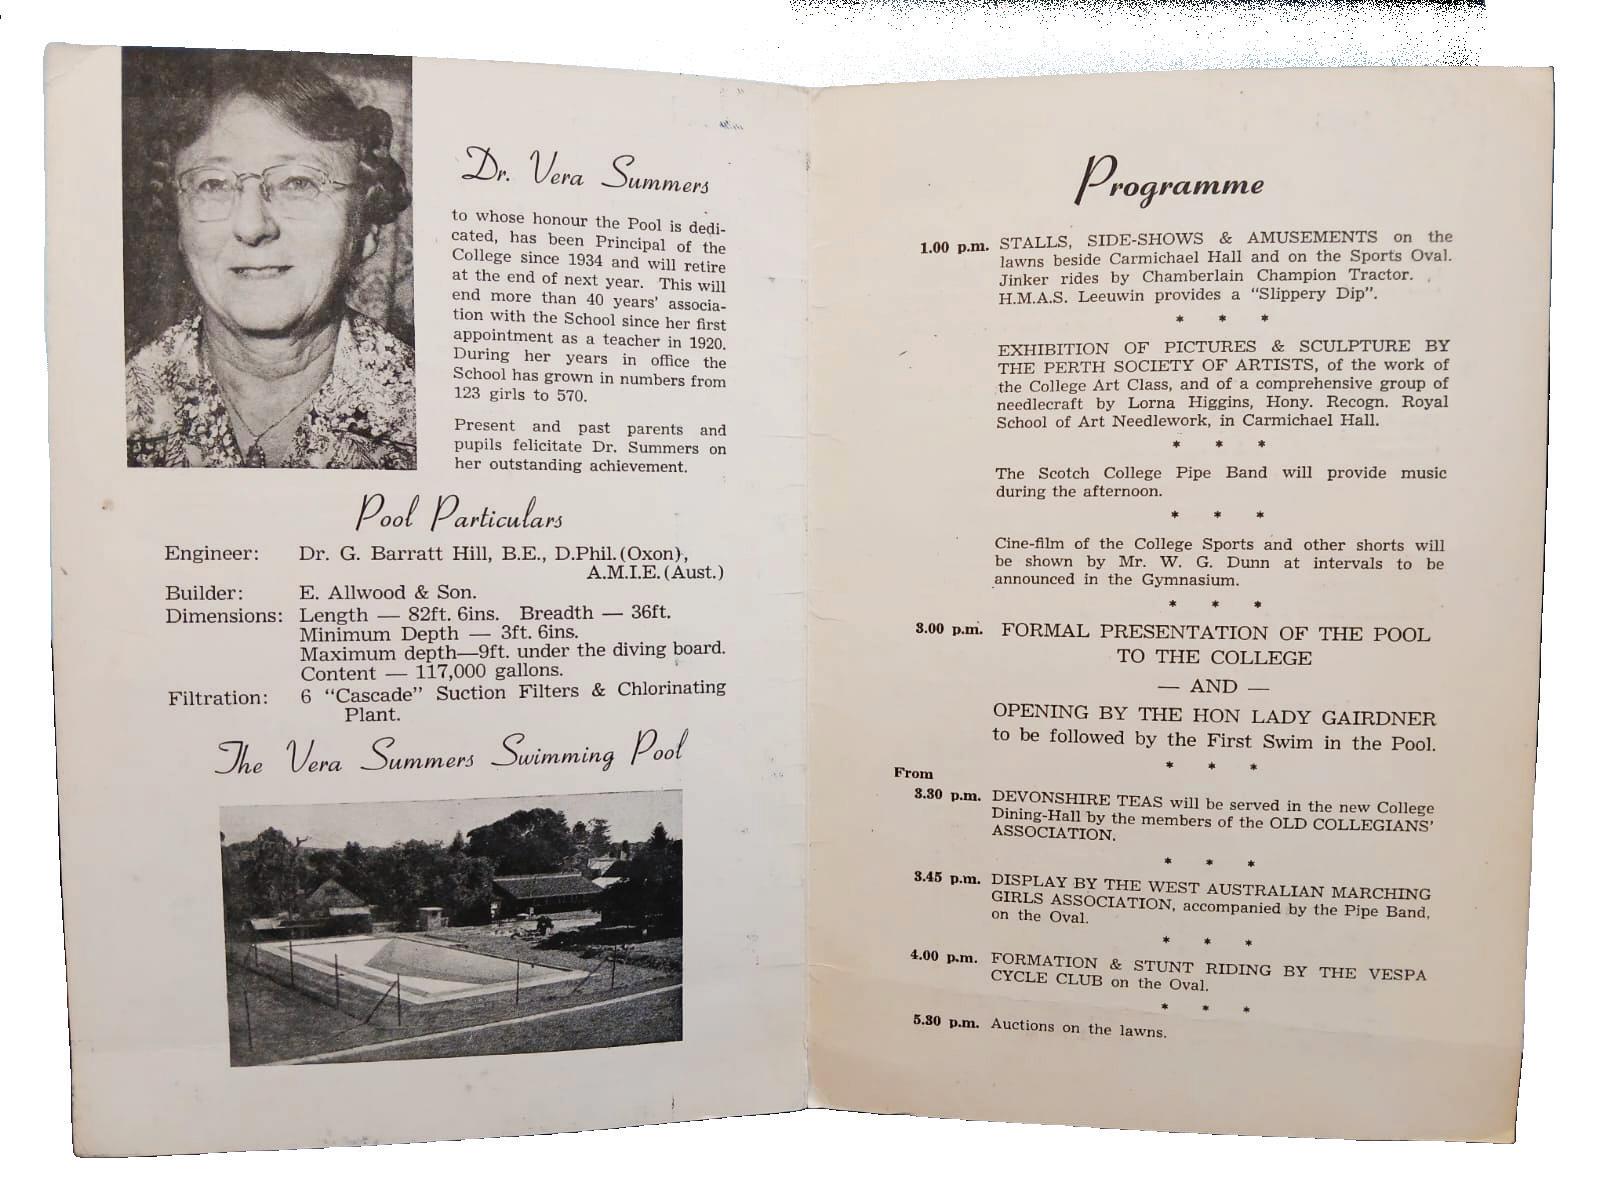 Dr. Vera Summers
to whose honour the Pool is dedi-
cated, has been Principal of the
College since 1934 and will retire
at the end of next year. This will
end more than 40 years' associa-
tion with the School since her first
appointment as a teacher in 1920.
During her years in office the
School has grown in numbers from
123 girls to 570.
Present and past parents and
pupils felicitate Dr. Summers on
her outstanding achievement.
Pool Particulars
Engineer: Dr. G. Barratt Hill, B.E., D.Phil.(Oxon),
A.M.I.E.(Aust.)
Builder: E. Allwood & Son.
Dimensions: Length — 82ft. 6ins. Breadth — 36ft.
Minimum Depth — 3ft. 6ins.
Maximum depth—9ft. under the diving board.
Content — 117,000 gallons.
Filtration: 6 "Cascade" Suction Filters & Chlorinating
Plant.
The Vera Summers Swimming Pool
Programme
1.00 p.m. STALLS, SIDE-SHOWS & AMUSEMENTS on the
lawns beside Carmichael Hall and on the Sports Oval.
Jinker rides by Chamberlain Champion Tractor.
H.M.A.S. Leeuwin provides a "Slippery Dip".
* * *
EXHIBITION OF PICTURES & SCULPTURE BY
THE PERTH SOCIETY OF ARTISTS, of the work of
the College Art Class, and of a comprehensive group of
needlecraft by Lorna Higgins, Hony. Recogn. Royal
School of Art Needlework, in Carmichael Hall.
* * *
The Scotch College Pipe Band will provide music
during the afternoon.
* * *
Cine-film of the College Sports and other shorts will
be shown by Mr. W. G. Dunn at intervals to be
announced in the Gymnasium.
* * *
3.00 p.m. FORMAL PRESENTATION OF THE POOL
TO THE COLLEGE
— AND —
OPENING BY THE HON LADY GAIRDNER
to be followed by the First Swim in the Pool.
* * *
From
3.30 p.m. DEVONSHIRE TEAS will be served in the new College
Dining-Hall by the members of the OLD COLLEGIANS'
ASSOCIATION.
* * *
3.45 p.m. DISPLAY BY THE WEST AUSTRALIAN MARCHING
GIRLS ASSOCIATION, accompanied by the Pipe Band,
on the Oval.
* * *
4.00 p.m. FORMATION & STUNT RIDING BY THE VESPA
CYCLE CLUB on the Oval.
* * *
5.30 p.m. Auctions on the lawns.